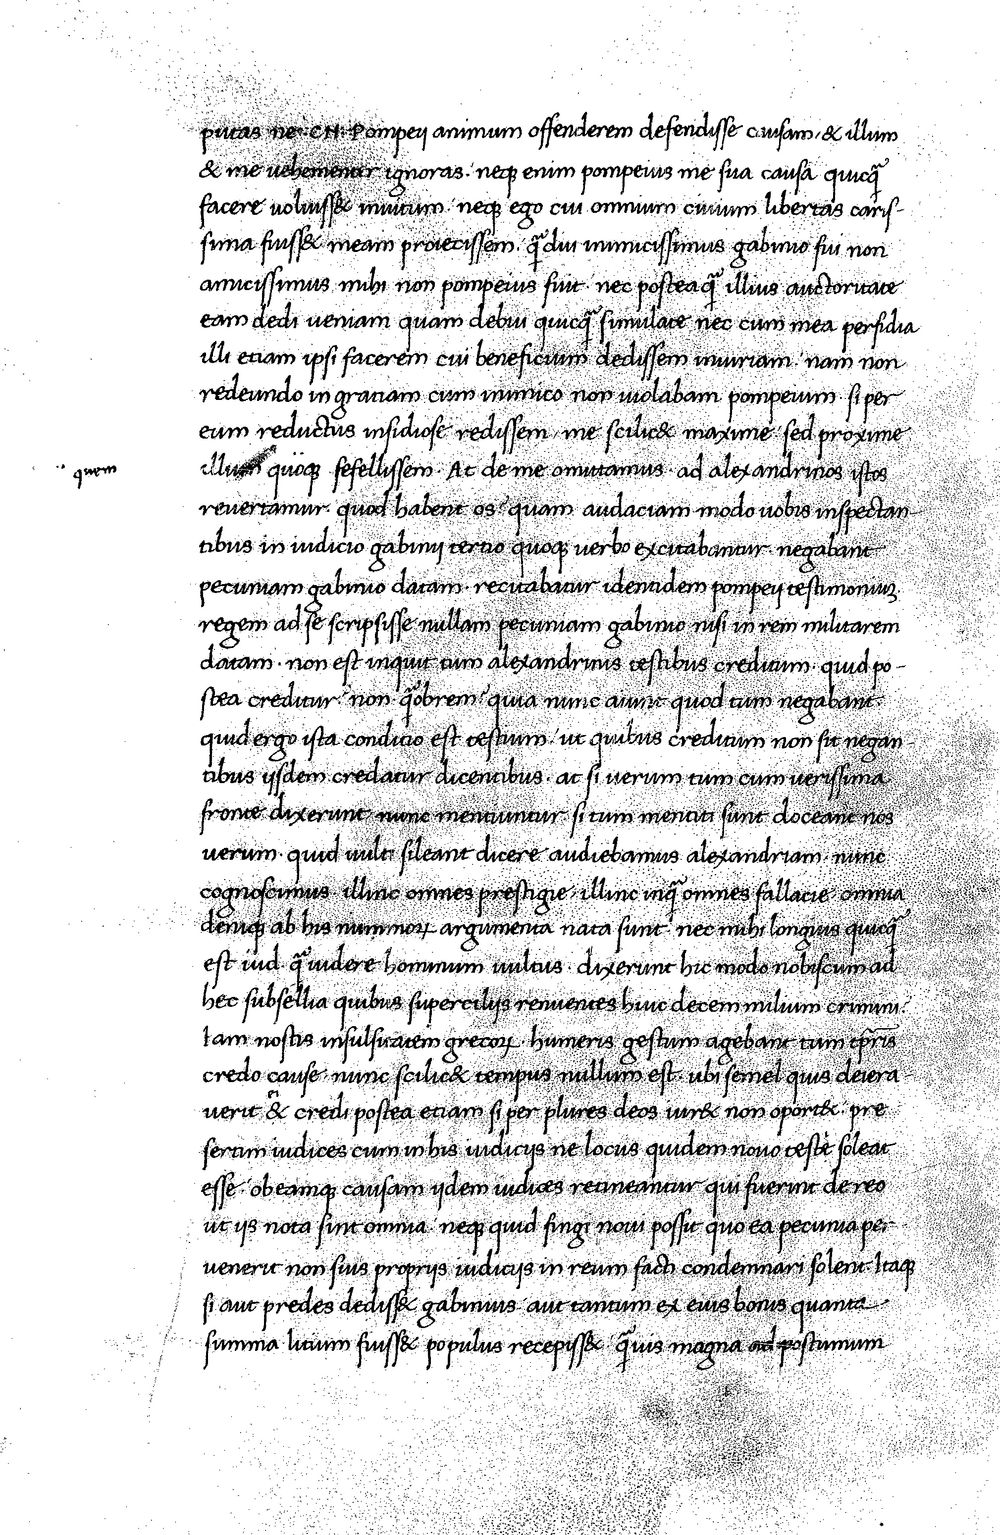 putas ne CN. Pompeij animum offenderem defendisse causam, & illum
& me uehementer ignoras. neqꝫ enim pompeius me sua causa quicq̃
facere uoluiss& inuitum neqꝫ ego cui omnium ciuium libertas caris-
sima fuiss& meam proiecissem. q̃diu inimicissimus gabinio fui non
amicissimus mihi non pompeius fuit nec posteaq̃ illius auctoritate
eam dedi ueniam quam debui quicq̃ simulate nec cum mea perfidia
illi etiam ipsi facerem cui beneficium dedissem iniuriam. nam non
redeundo in gratiam cum inimico non uiolabam pompeium. si per
eum reductus insidiose redissem me scilic& maxime sed proxime
quem
illum quoqꝫ fefellissem. At de me omittamus ad alexandrinos istos
reuertamur. quod habent os quam audaciam modo uobis inspectan-
tibus in iudicio gabinij tertio quoqꝫ uerbo excitabantur. negabant
pecuniam gabinio datam. recitabatur identidem pompeij testimoniuꝫ
regem ad se scripsisse nullam pecuniam gabinio nisi in rem militarem
datam. non est inquit tum alexandrinis testibus creditum. quid po-
stea creditur non q̃obrem quia nunc aiunt quod tum negabant.
quid ergo ista condicio est testium ut quibus creditum non sit negan-
tibus ijsdem credatur dicentibus. at si uerum tum cum uerissima
fronte dixerunt nunc mentiuntur si tum mentiti sunt doceant nos
uerum quid uulti sileant dicere audiebamus alexandriam nunc
cognoscimus illinc omnes prestigie, illinc inq̃ omnes fallacie omnia
deniqꝫ ab his mimmoꝝ argumenta nata sunt nec mihi longius quicq̃
est iud. q̃ uidere hominum uultus. dixerunt hic modo nobiscum ad
hec subsellia quibus supercilijs renuentes huic decem milium crimini.
Iam nostis insulsitatem grecoꝝ. humeris gestum agebant tum tp̃ris
credo cause nunc scilic& tempus nullum est. ubi semel quis deiera-
uerit & credi postea etiam si per plures deos iur& non oport&. pre
sertim iudices cum in his iudicijs ne locus quidem nouo teste soleat
esse obeamqꝫ causam ijdem iudices retineantur qui fuerint de reo
ut ijs nota sint omnia neqꝫ quid fingi noui possit quo ea pecunia per-
uenerit non suis proprijs iudicijs in reum facti condemnari solent Itaqꝫ
si aut predes dediss& gabinius aut tantum ex eius bonis quanta
summa litium fuiss& populus recepiss& q̃uis magna ad postumum